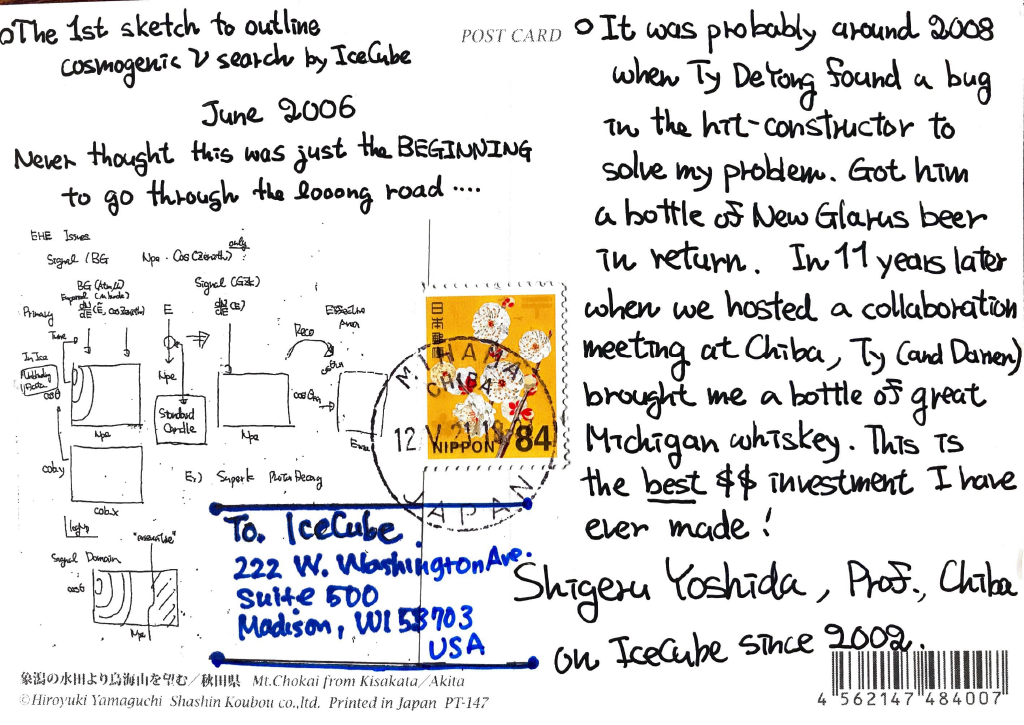 The 1st sketch to outline
cosmogenic ν search by IceCube
June 2006
Never thought this was just the BEGINNING
to go through the looong road ....
EHE Issues
Signal / BG
Npe - Cos(Zenith) only
BG (Atm μ)
Signal (GZK)
Primary
E
Effective
Area
Reco
InIce
cosθ
Npe
Npe
Standard
Candle
Npe
cosθ
cob.y
cob.x
Ex) SuperK Proton Decay
Signal Domain
cosθ
Npe
POST CARD
日本郵便
NIPPON 84
MIHAMA
CHIBA
12. V. 21
JAPAN
To. IceCube
222 W. Washington Ave.
Suite 500
Madison, WI 53703
USA
It was probably around 2008
when Ty DeYong found a bug
in the hit-constructor to
solve my problem. Got him
a bottle of New Glarus beer
in return. In 11 years later
when we hosted a collaboration
meeting at Chiba, Ty (and Darren)
brought me a bottle of great
Michigan whiskey. This is
the best $$ investment I have
ever made!
Shigeru Yoshida, Prof., Chiba
on IceCube since 2002.
象潟の水田より鳥海山を望む／秋田県 Mt.Chokai from Kisakata／Akita
©Hiroyuki Yamaguchi Shashin Koubou co.,ltd. Printed in Japan PT-147
4 562147 484007